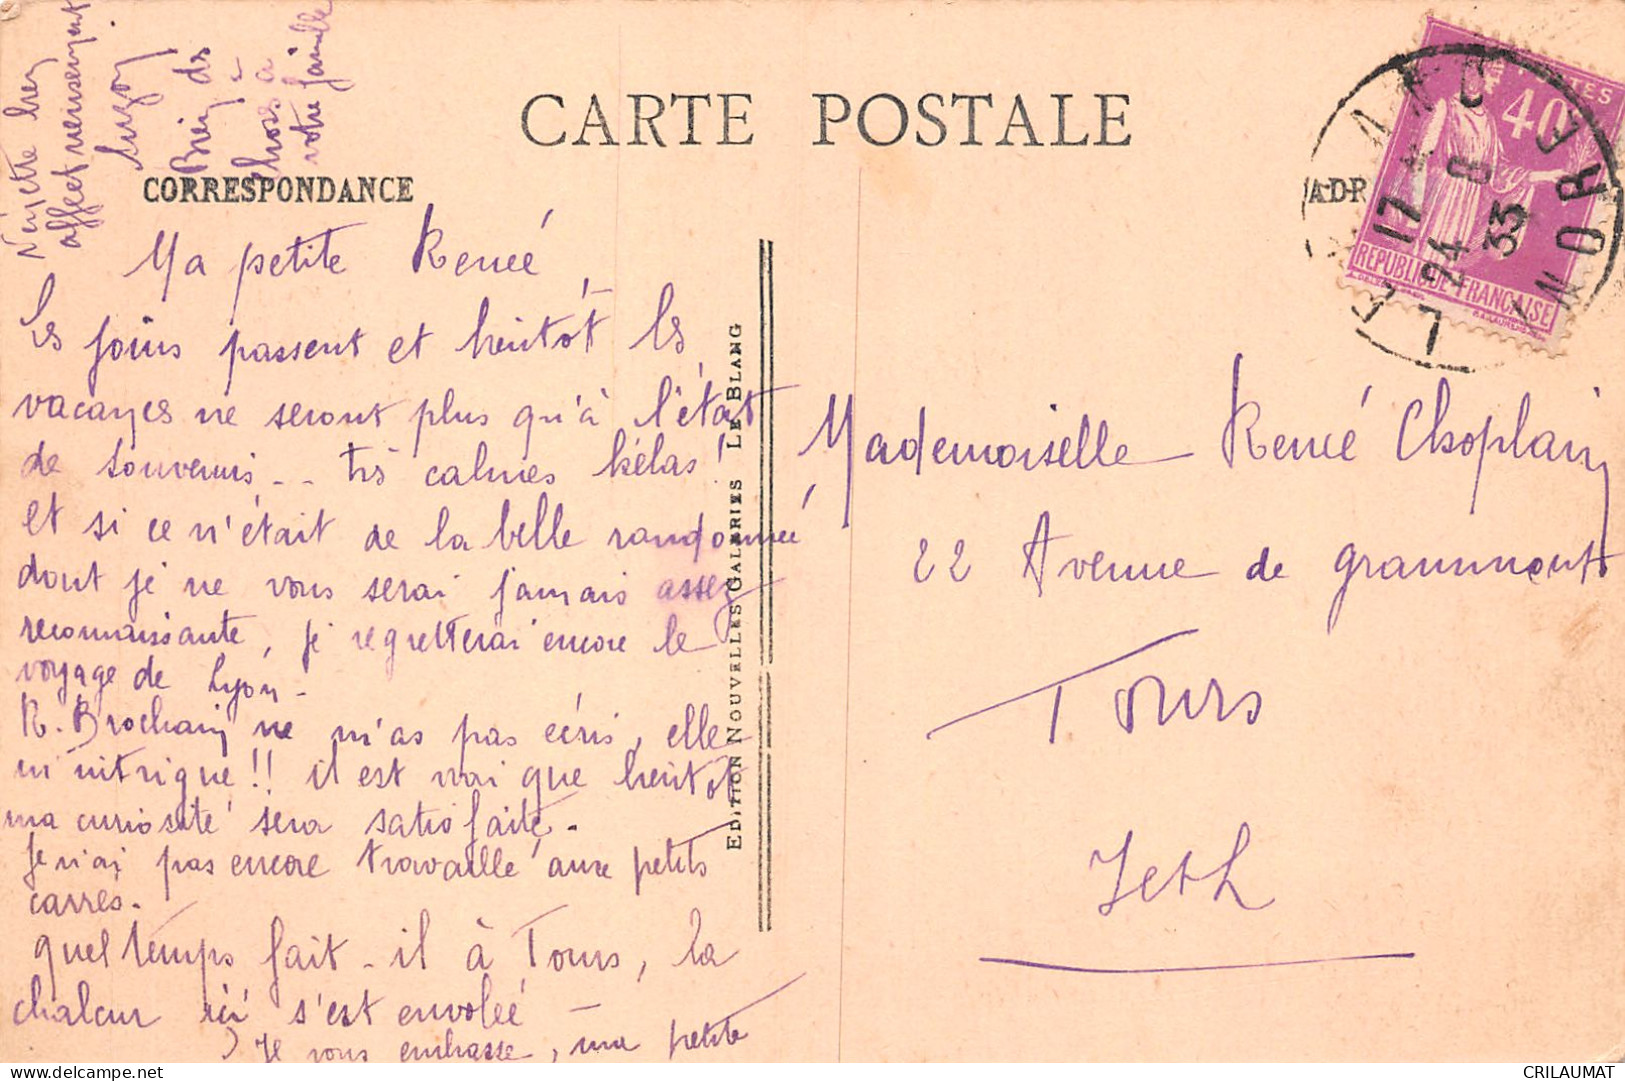 CARTE POSTALE
CORRESPONDANCE
ADR
Ma petite Renée,
Les jours passent et bientôt les
vacances ne seront plus qu'à l'état
de souvenirs -- très calmes hélas!
et si ce n'était de la belle randonnée
dont je ne vous serai jamais assez
reconnaissante, je regretterai encore le
voyage de Lyon -
R. Brochain ne m'as pas écris, elle
m'intrigue!! il est vrai que bientôt
ma curiosité sera satisfaite -
Je n'ai pas encore travaillé aux petits
carrés -
quel temps fait-il à Tours, la
chaleur ici s'est envolée -
Je vous embrasse, ma petite
Renée très
affectueusement
Suzon
Bien ds
choses à
votre famille
EDITION NOUVELLES GALERIES LE BLANC
POSTES
40
RÉPUBLIQUE FRANÇAISE
LE BLANC
17
24 8
33
INDRE
Mademoiselle Renée Choplain
22 Avenue de grammont
Tours
I et L
CRILAUMAT